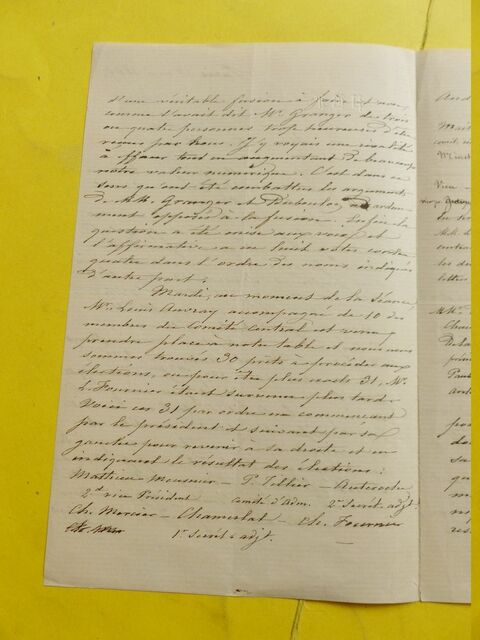 d'une véritable fusion à faire et non,
comme l'avait dit Mr. Granger de trois
ou quatre personnes trop heureuses d'être
reçues par nous. J'y voyais une rivalité
à effacer tout en augmentant de beaucoup
notre valeur numérique. C'est dans ce
sens qu'ont été combattus les arguments
de MM. Granger et
opposés à la fusion. Enfin la
question a été mise aux voix et
l'affirmative a eu huit votes contre
quatre dans l'ordre des noms indiqués
d'autre part.
Mardi, au moment de la séance,
Mr. Louis Auvray accompagné de 10 des
membres du Comité Central est venu
prendre place à notre table et nous nous
sommes trouvés 30 prêts à procéder aux
élections, ou pour être plus exacts 31, Mr.
L. Fournier étant survenu plus tard.
Voici ces 31 par ordre en commençant
par le président et suivant par sa
gauche pour revenir à sa droite et en
indiquant le résultat des élections :
Mathieu Meusnier - P. Tellier - Auteroche
2d vice Président comité d'Adm. 2e Secrét. adjt.
Ch. Mercier - Chamerlat - Ch. Fournier
1r Secrét. adjt. —